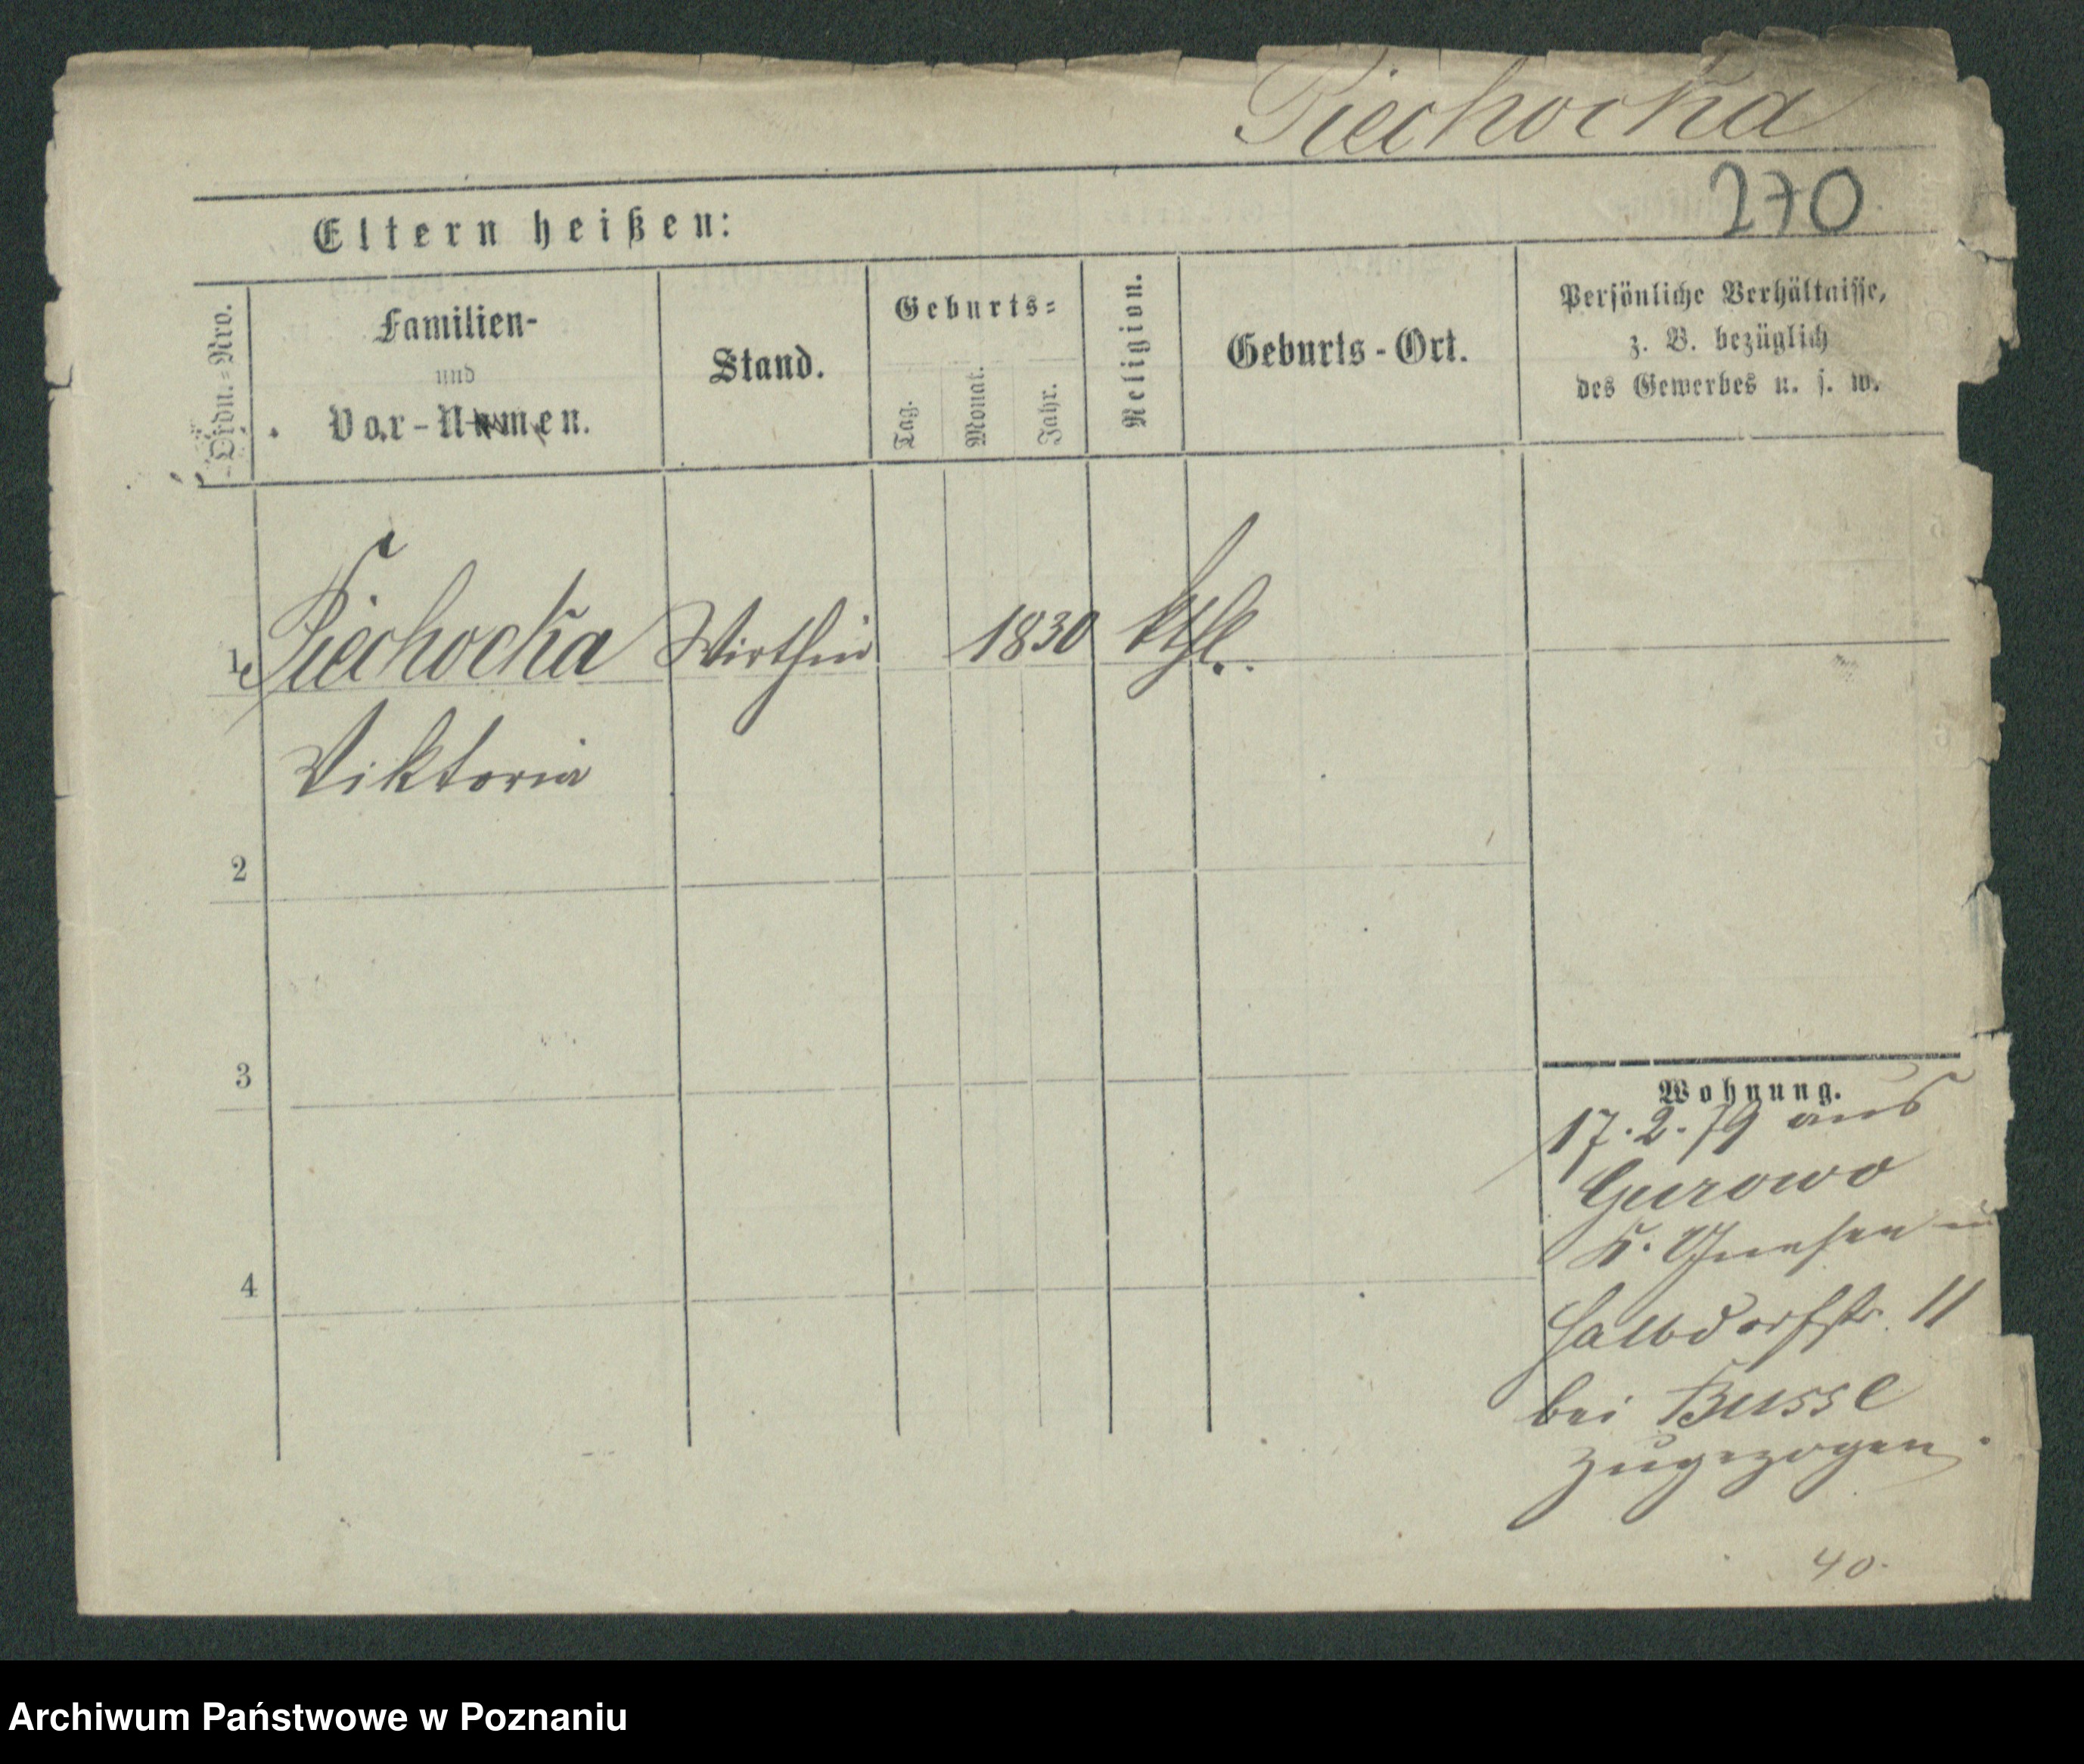 Piechocka
270
Eltern heißen:
Ordn.=Nro.
Familien-
und
Vor-Namen.
Stand.
Geburts=
Tag.
Monat.
Jahr.
Religion.
Geburts-Ort.
Persönliche Verhältnisse,
z. B. bezüglich
des Gewerbes u. s. w.
1 Piechocka Wirthin 1830 kthl.
Viktoria
2
3
4
Wohnung.
17.2.79 aus
Gurowo
K. Gnesen
Halbdorfstr. 11
bei Busse
zugezogen.
40.
Archiwum Państwowe w Poznaniu